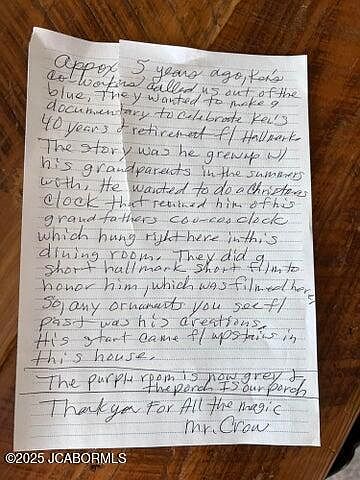 Appox. 5 years ago, Ken's
co-workers called us out of the
blue, They wanted to make a
documentary to celebrate Ken's
40 years & retirement f/ Hallmark
The story was he grewup w/
his grandparents in the summers
with. He wanted to do a Christmas
clock that remined him of his
grandfathers coo-coo clock
which hung right here in this
dining room. They did a
short hallmark short film to
honor him, which was filmed here,
So, any ornaments you see f/
past was his creations.
His start came f/ upstairs in
this house.
The purple room is now grey &
the porch is our porch
Thank you For All the magic
Mr. Crow
©2025 JCABORMLS